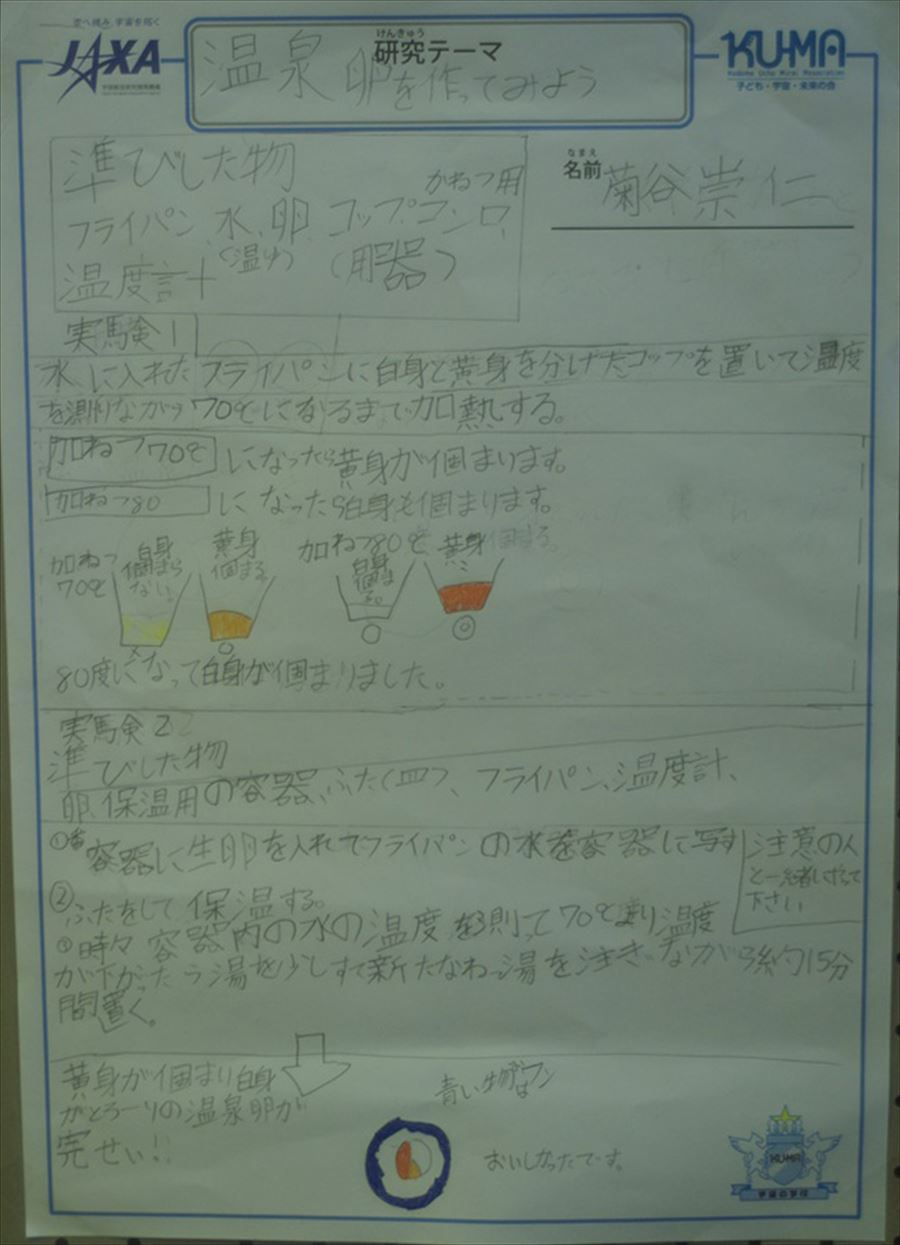 空へ挑み、宇宙を拓く
JAXA
けんきゅう
研究テーマ
温泉卵を作ってみよう
KU-MA
Kodomo Uchu Mirai Association
子ども・宇宙・未来の会
準びした物
フライパン、水、卵、コップ、コンロ、
かねつ用
(温ゆ)
(用器)
温度計
なまえ
名前 菊谷崇仁
実験1
水に入れたフライパンに白身と黄身を分けたコップを置いて温度
を測りながら70℃になるまで加熱する。
加ねつ70℃ になったら黄身が個まります。
加ねつ80 になったら白身も個まります。
加ねつ70℃
白身個まらない。
黄身個まる。
加ねつ80℃
白身個まる。
黄身個まる。
80度になって白身が個まりました。
実験2
準びした物
卵、保温用の容器、ふた(四つ、フライパン、温度計、
①番 容器に生卵を入れてフライパンの水を容器に写す
注意の人
と一緒にやって
下さい
②ふたをして保温する。
③時々容器内の水の温度を測って70℃より温度
が下がったら湯を少しすて新たなお湯を注ぎながら約15分
間置く。
黄身が個まり白身
がとろーりの温泉卵が
完せい!!
青い物は
おいしかったです。
KU-MA
宇宙の学校